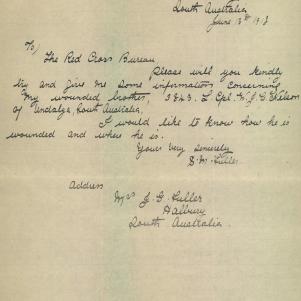 South Australia
June 13th 1918
To/
The Red Cross Bureau
Please will you kindly
try and give me some information concerning
my wounded brother, 3843. L. Cpl. W. J. G. Shilson
of Yandalga, South Australia.
I would like to know how he is
wounded and where he is.
Yours very sincerely
S. M. Fuller.
Address
Mrs J. G. Fuller
Halbury
South Australia.